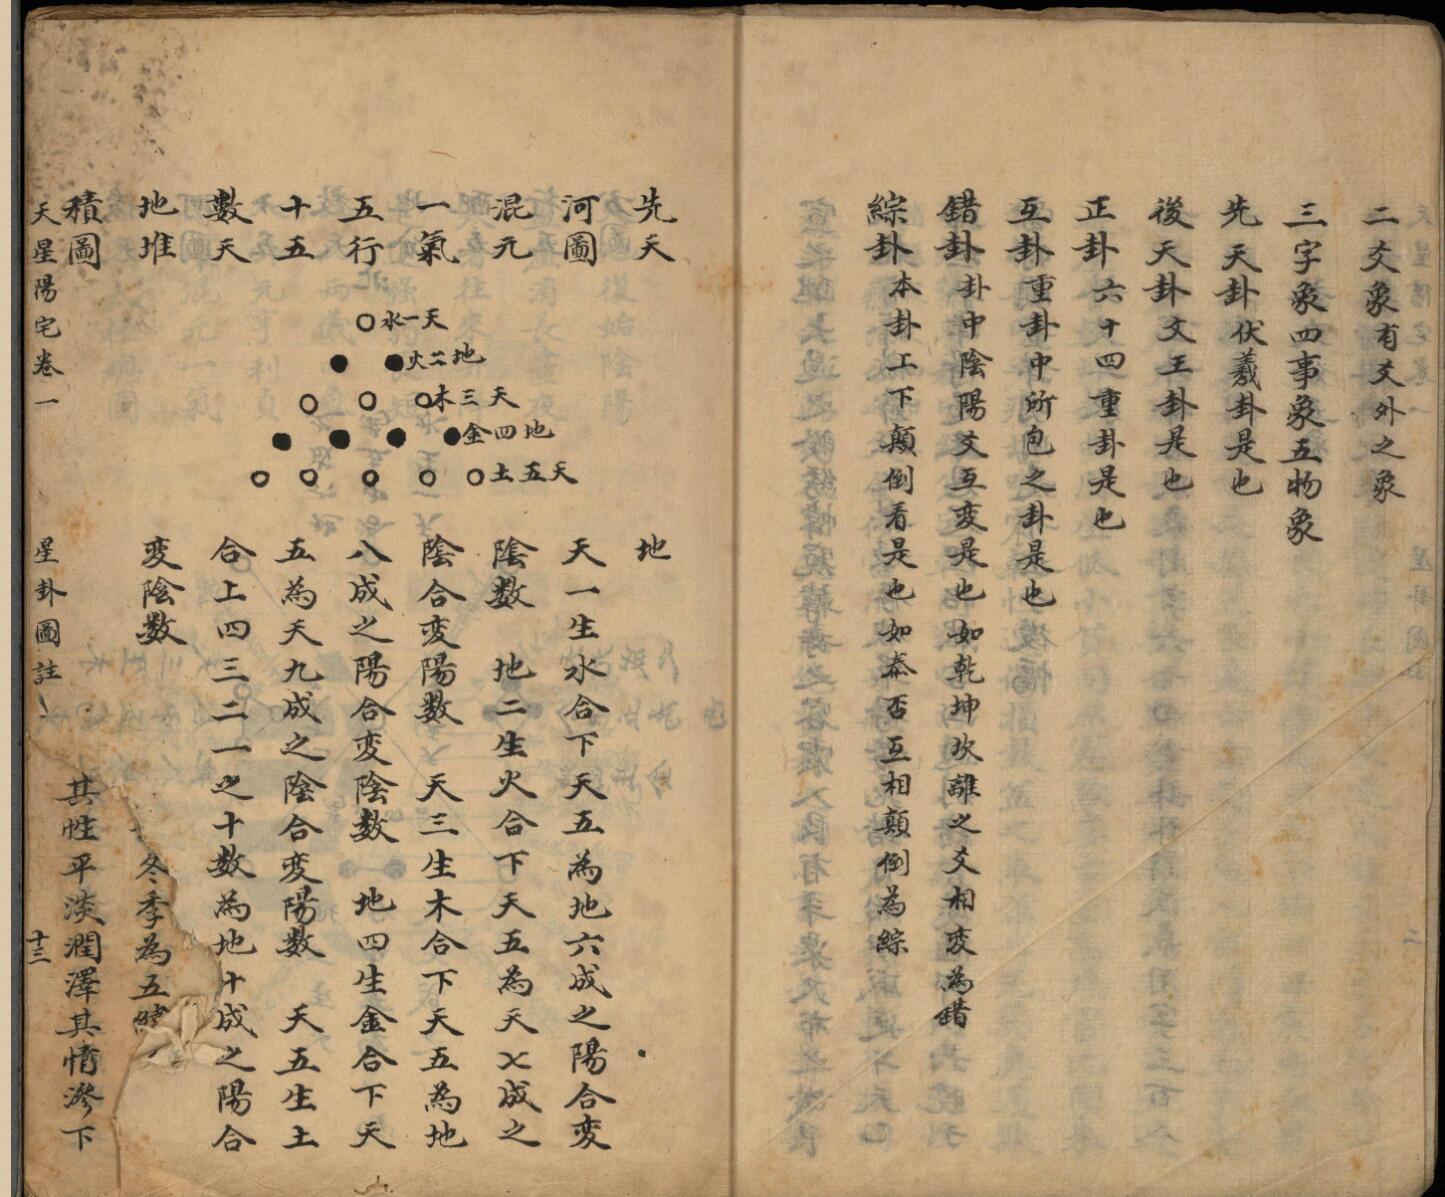 二爻象有爻外之象
三字象四事象五物象
先天卦伏羲卦是也
後天卦文王卦是也
正卦六十四重卦是也
互卦重卦中所包之卦是也
錯卦卦中陰陽爻互変是也如乾坤坎離之爻相変為錯
綜卦本卦上下顛倒看是也如泰否互相顛倒為綜
先天
河圖
混元
一氣
五行
十五
數天
地堆
積圖
天一水
地二火
天三木
地四金
天五土
地
天一生水合下天五為地六成之陽合変
陰数 地二生火合下天五為天七成之
陰合変陽数 天三生木合下天五為地
八成之陽合変陰数 地四生金合下天
五為天九成之陰合変陽数 天五生土
合上四三二一之十数為地十成之陽合
変陰数
冬季為五
其性平淡潤澤其情滲下
天星陽宅卷一 星卦圖註 十三